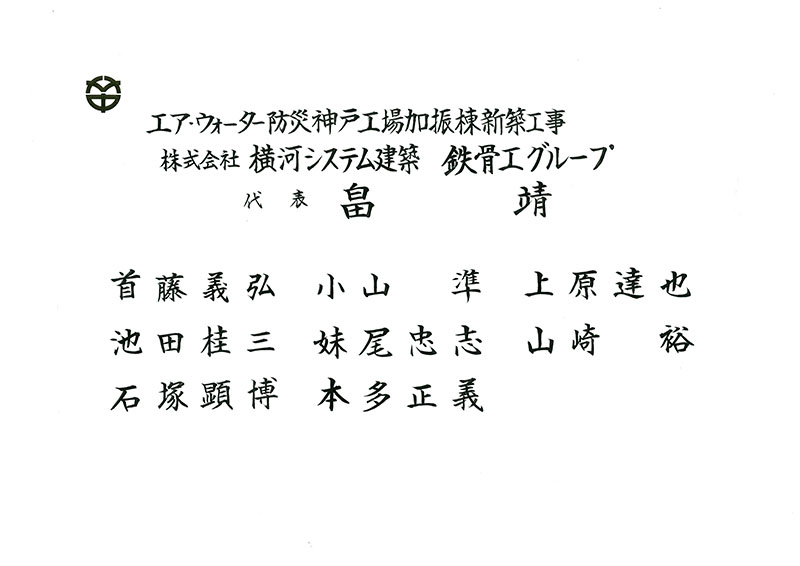 エア・ウォーター防災神戸工場加振棟新築工事
株式会社 横河システム建築 鉄骨工グループ
代表 畠 靖
首藤義弘 小山 準 上原達也
池田桂三 妹尾忠志 山崎 裕
石塚顕博 本多正義